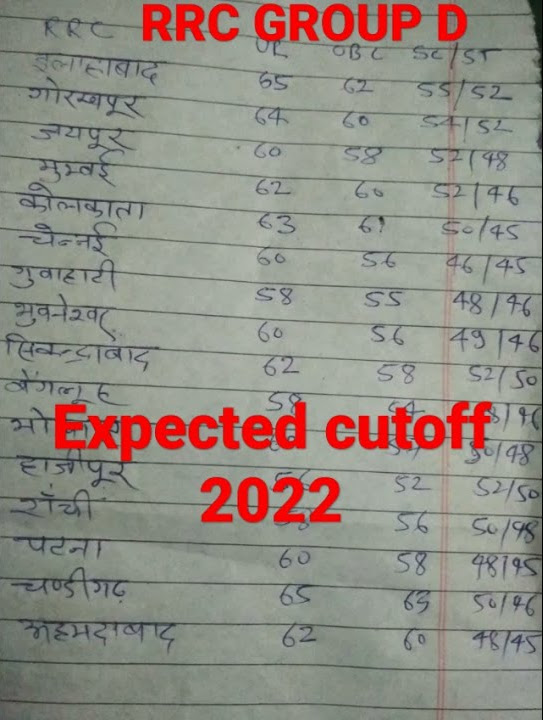 RRC RRC GROUP D
UR OBC SC/ST
इलाहाबाद 65 62 55/52
गोरखपुर 64 60 54/52
जयपुर 60 58 52/48
मुम्बई 62 60 52/46
कोलकाता 63 61 50/45
चेन्नई 60 56 46/45
गुवाहाटी 58 55 48/46
भुवनेश्वर 60 56 49/46
सिकन्द्राबाद 62 58 52/50
बेंगलूरु 58 54
Expected cutoff 50/48
हाजीपुर 52 52/50
2022
राँची 56 50/48
पटना 60 58 48/45
चण्डीगढ़ 65 63 50/46
अहमदाबाद 62 60 48/45